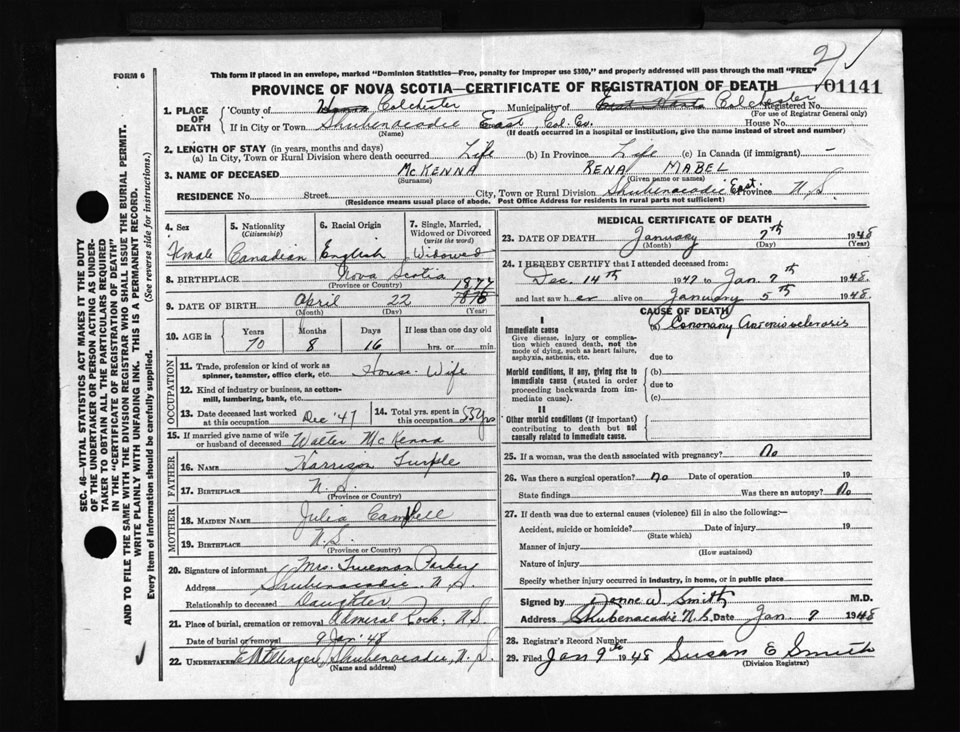 2
FORM 6
This form if placed in an envelope, marked "Dominion Statistics—Free, penalty for improper use $300," and properly addressed will pass through the mail "FREE"
PROVINCE OF NOVA SCOTIA—CERTIFICATE OF REGISTRATION OF DEATH
01141
1. PLACE OF DEATH
County of Hants Colchester Municipality of East Hants Colchester Registered No.
(For use of Registrar General only)
If in City or Town Shubenacadie East, Col. Co. House No.
(Name) (If death occurred in a hospital or institution, give the name instead of street and number)
2. LENGTH OF STAY (in years, months and days)
(a) In City, Town or Rural Division where death occurred Life (b) In Province Life (c) In Canada (if immigrant) —
3. NAME OF DECEASED McKENNA RENA MABEL
(Surname) (Given name or names)
RESIDENCE No. Street City, Town or Rural Division Shubenacadie East. Province N.S
(Residence means usual place of abode. Post Office Address for residents in rural parts not sufficient)
4. Sex
Female
5. Nationality
(Citizenship)
Canadian
6. Racial Origin
English
7. Single, Married, Widowed or Divorced
(write the word)
Widowed
8. BIRTHPLACE Nova Scotia
(Province or Country)
9. DATE OF BIRTH April 22 1877 1878
(Month) (Day) (Year)
10. AGE in
Years Months Days If less than one day old
70 8 16 hrs. or min.
OCCUPATION
11. Trade, profession or kind of work as spinner, teamster, office clerk, etc. House-Wife
12. Kind of industry or business, as cotton-mill, lumbering, bank, etc.
13. Date deceased last worked at this occupation Dec '47
14. Total yrs. spent in this occupation 53 yrs
15. If married give name of wife or husband of deceased Walter McKenna
FATHER
16. NAME Harrison Turple
17. BIRTHPLACE N.S.
(Province or Country)
MOTHER
18. MAIDEN NAME Julia Campbell
19. BIRTHPLACE N.S.
(Province or Country)
20. Signature of informant Mrs. Freeman
Address Shubenacadie. N.S
Relationship to deceased Daughter
21. Place of burial, cremation or removal Admiral Rock, N.S.
Date of burial or removal 9 Jan '48
22. UNDERTAKER Shubenacadie, N.S.
(Name and address)
MEDICAL CERTIFICATE OF DEATH
23. DATE OF DEATH January 7th 1948
(Month) (Day) (Year)
24. I HEREBY CERTIFY that I attended deceased from:
Dec. 14th 1947 to Jan. 7th 1948
and last saw her alive on January 5th 1948
CAUSE OF DEATH
I
Immediate cause
Give disease, injury or complication which caused death, not the mode of dying, such as heart failure, asphyxia, asthenia, etc.
(a) Coronary Arteriosclerosis
due to
Morbid conditions, if any, giving rise to immediate cause (stated in order proceeding backwards from immediate cause).
(b)
due to
(c)
II
Other morbid conditions (if important) contributing to death but not causally related to immediate cause.
25. If a woman, was the death associated with pregnancy? No
26. Was there a surgical operation? no Date of operation 19
State findings Was there an autopsy? No
27. If death was due to external causes (violence) fill in also the following:—
Accident, suicide or homicide? Date of injury 19
(State which)
Manner of injury
(How sustained)
Nature of injury
Specify whether injury occurred in industry, in home, or in public place
Signed by W Smith M.D.
Address Shubenacadie N.S. Date Jan. 9 1948
28. Registrar's Record Number
29. Filed Jan 9th 1948 Susan E Smith
(Division Registrar)
SEC. 46—VITAL STATISTICS ACT MAKES IT THE DUTY
OF THE UNDERTAKER OR PERSON ACTING AS UNDER-
TAKER TO OBTAIN ALL THE PARTICULARS REQUIRED
IN THE "CERTIFICATE OF REGISTRATION OF DEATH"
AND TO FILE THE SAME WITH THE DIVISION REGISTRAR WHO SHALL ISSUE THE BURIAL PERMIT.
WRITE PLAINLY WITH UNFADING INK. THIS IS A PERMANENT RECORD.
Every item of information should be carefully supplied. (See reverse side for instructions.)